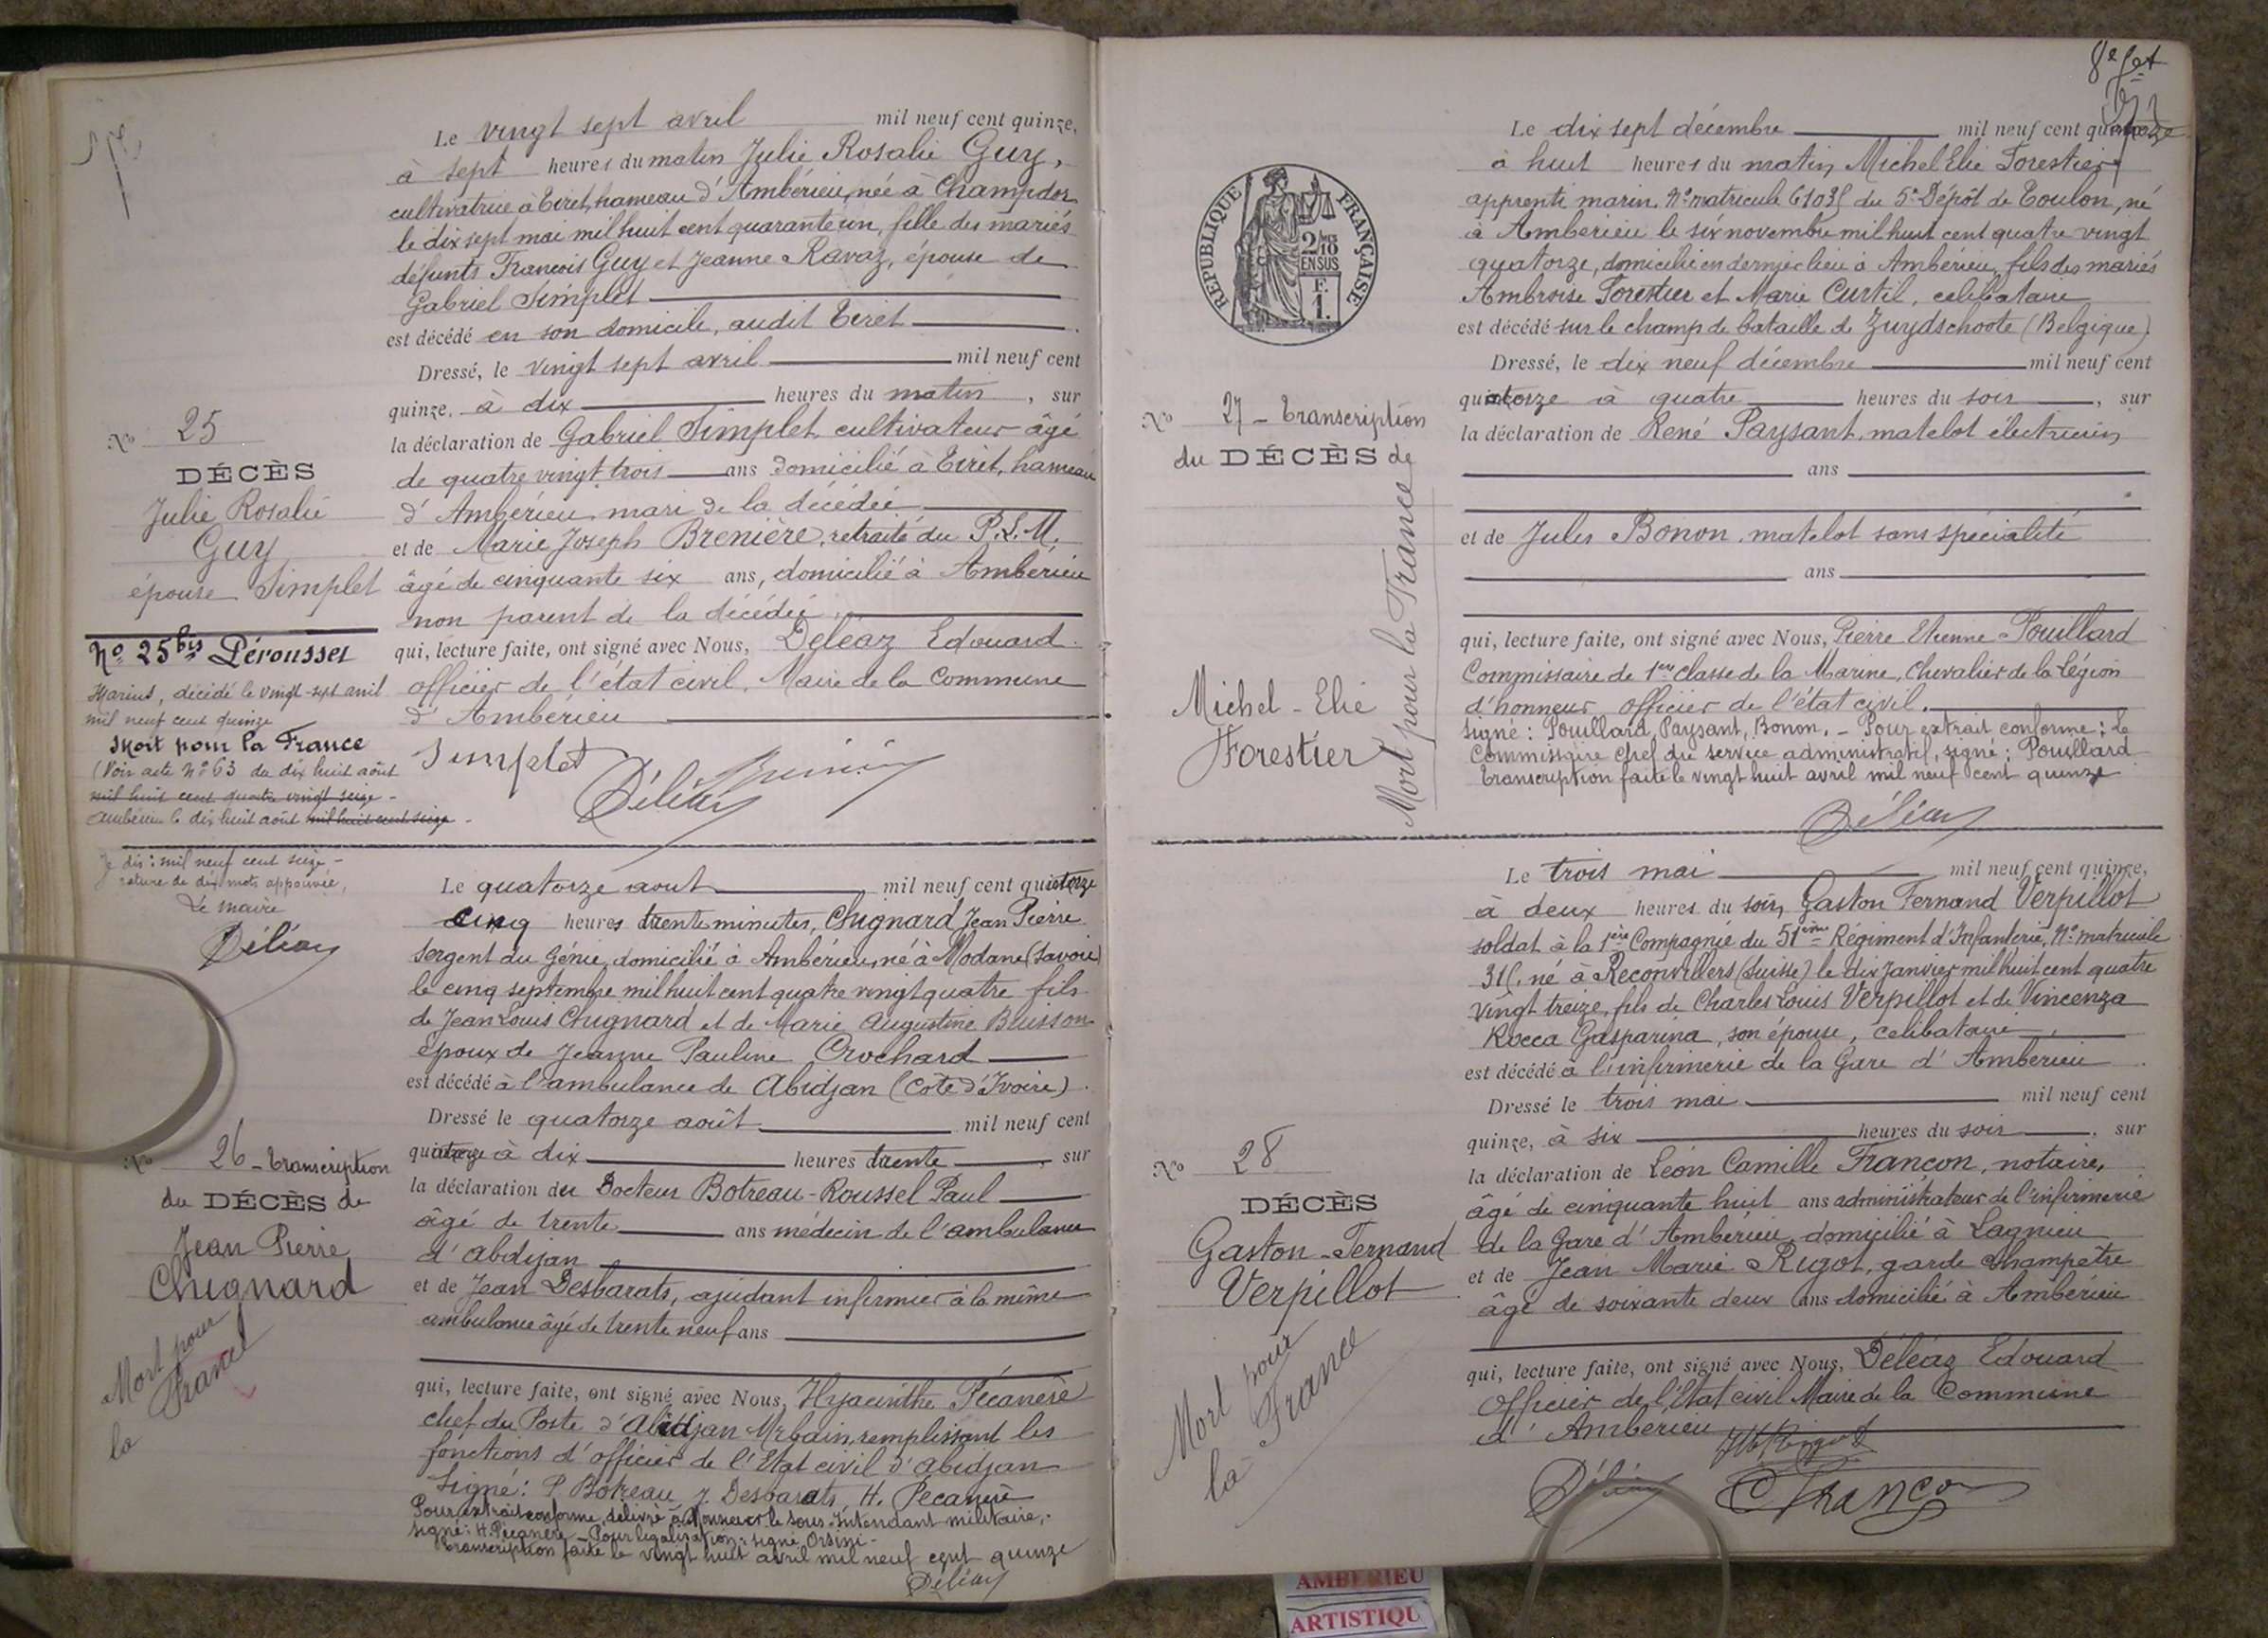 Le vingt sept avril mil neuf cent quinze,
à sept heures du matin Julie Rosalie Guy,
cultivatrice à Tiret, hameau d'Ambérieu, née à Champdor
le dix sept mai mil huit cent quarante un, fille des mariés
défunts François Guy et Jeanne Ravaz, épouse de
Gabriel Simplet
est décédé en son domicile, audit Tiret
Dressé, le vingt sept avril mil neuf cent
quinze, à dix heures du matin, sur
la déclaration de Gabriel Simplet cultivateur âgé
de quatre vingt trois ans domicilié à Tiret, hameau
d'Ambérieu mari de la décédée
et de Marie Joseph Brenière, retraité du P.L.M.
âgé de cinquante six ans, domicilié à Ambérieu
non parent de la décédée
qui, lecture faite, ont signé avec Nous, Deléaz Edouard
officier de l'état civil, Maire de la Commune
d'Ambérieu
Simplet
Déléaz
No 25
DÉCÈS
Julie Rosalie
Guy
épouse Simplet
No 25 bis Pérousset
Marius, décédé le vingt-sept avril
mil neuf cent quinze
Mort pour la France
(Voir acte No 63 du dix huit août
mil huit cent quatre vingt seize -
Ambérieu le dix huit août mil huit cent seize -
Je dis : mil neuf cent seize -
rature de dix mots approuvée,
Le maire
Déléaz
Le quatorze aout mil neuf cent quatorze
cinq heures trente minutes, Chignard Jean Pierre
sergent du Génie, domicilié à Ambérieu, né à Modane (Savoie)
le cinq septembre mil huit cent quatre vingt quatre fils
de Jean Louis Chignard et de Marie Augustine Buisson
époux de Jeanne Pauline Crochard
est décédé à l'ambulance de Abidjan (Côte d'Ivoire).
Dressé le quatorze août mil neuf cent
quatorze à dix heures trente, sur
la déclaration du Docteur Botreau-Roussel Paul
âgé de trente ans médecin de l'ambulance
d'Abidjan
et de Jean Desbarats, ajudant infirmier à la même
ambulance âgé de trente neuf ans
qui, lecture faite, ont signé avec Nous, Hyacinthe Pécanère
chef du Poste d'Abidjan Urbain, remplissant les
fonctions d'officier de l'Etat civil d'Abidjan
Signé: P. Botreau, J. Desbarats, H. Pecanère
Pour extrait conforme, délivré à Monsieur le Sous-Intendant militaire,
signé: H. Pécanère - Pour légalisation: signé Orsini -
Transcription faite le vingt huit avril mil neuf cent quinze
Déléaz
No 26 - Transcription
du DÉCÈS de
Jean Pierre
Chignard
Mort pour
la France
8e
Le dix sept décembre mil neuf cent quatorze
à huit heures du matin Michel Elie Forestier
apprenti marin No matricule 61035 du 5e Dépôt de Toulon, né
à Ambérieu le six novembre mil huit cent quatre vingt
quatorze, domicilié en dernier lieu à Ambérieu, fils des mariés
Ambroise Forestier et Marie Curtil, célibataire
est décédé sur le champ de bataille de Zuydschoote (Belgique)
Dressé, le dix neuf décembre mil neuf cent
quatorze à quatre heures du soir, sur
la déclaration de René Paysant, matelot électricien
ans
et de Jules Bonon, matelot sans spécialité
ans
qui, lecture faite, ont signé avec Nous, Pierre Etienne Pouillard
Commissaire de 1ère classe de la Marine, Chevalier de la Légion
d'honneur officier de l'état civil.
signé : Pouillard, Paysant, Bonon. - Pour extrait conforme : Le
Commissaire chef du service administratif, signé : Pouillard
Transcription faite le vingt huit avril mil neuf cent quinze
Déléaz
RÉPUBLIQUE FRANÇAISE
2/10
EN SUS
F.
1.
No 27 - Transcription
du DÉCÈS de
Michel - Elie
Forestier
Mort pour la France
Le trois mai mil neuf cent quinze,
à deux heures du soir, Gaston Fernand Verpillot
soldat à la 1ère Compagnie du 51ème Régiment d'Infanterie, No matricule
né à Reconvillers (Suisse) le dix janvier mil huit cent quatre
vingt treize, fils de Charles Louis Verpillot et de Vincenza
Rocca Gasparina, son épouse, célibataire
est décédé à l'infirmerie de la Gare d'Ambérieu
Dressé le trois mai mil neuf cent
quinze, à six heures du soir, sur
la déclaration de Léon Camille Françon, notaire,
âgé de cinquante huit ans administrateur de l'infirmerie
de la Gare d'Ambérieu, domicilié à Lagnieu
et de Jean Marie Rigot, garde champêtre
âgé de soixante deux ans domicilié à Ambérieu
qui, lecture faite, ont signé avec Nous, Déléaz Edouard
Officier de l'Etat civil Maire de la Commune
d'Ambérieu
Déléaz
C Françon
No 28
DÉCÈS
Gaston - Fernand
Verpillot
Mort pour
la France
AMBERIEU
ARTISTIQU